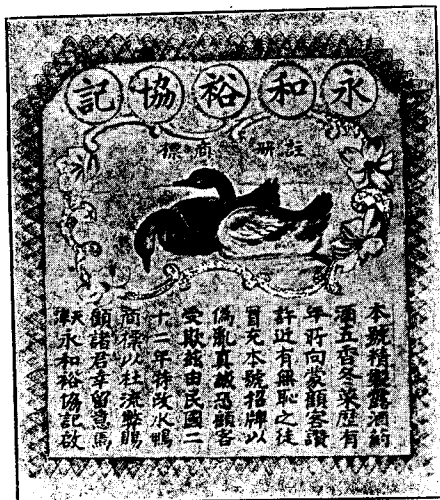 永和裕協記
註册商標
本號精製露酒葯
酒五香冬菜歷有
年所向蒙顧客讚
許近有無恥之徒
冒充本號招牌以
偽亂真誠恐顧客
受欺茲由民國二
十二年特改水鴨
商標以杜流弊賜
顧諸君幸留意焉
天津永和裕協記啟